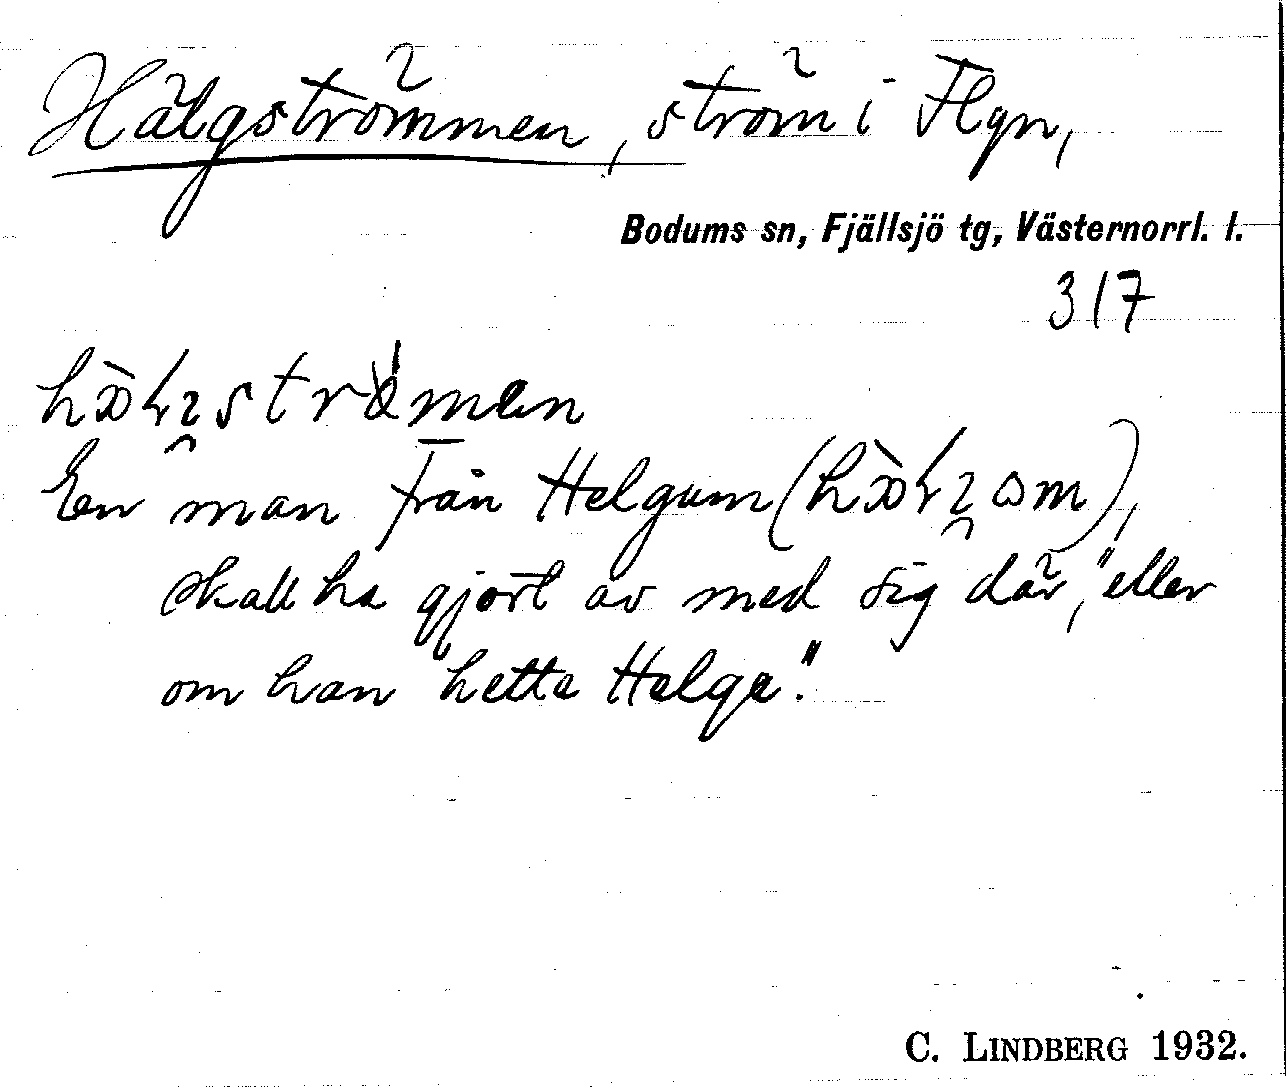 Hälgströmmen, ström i Flyn,
Bodums sn, Fjällsjö tg, Västernorrl. l.
317
En man från Helgum
skall ha gjort av med sig där, "eller
om han hette Helge".
C. LINDBERG 1932.